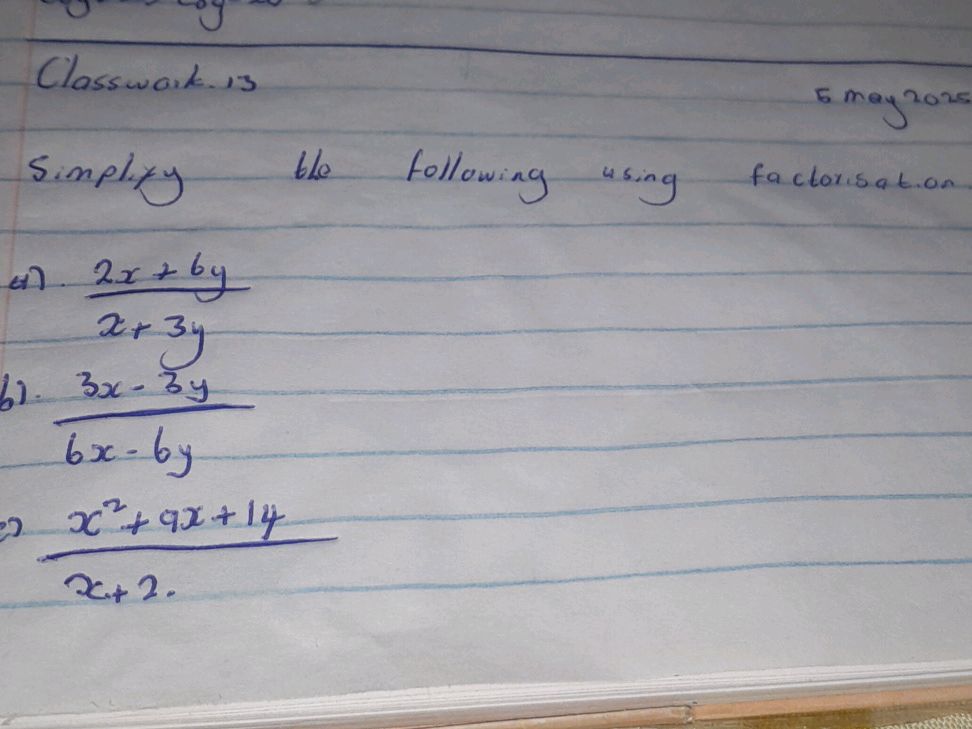 Classwork.13
5 may 2025
Simplify the following using factorisation
a). 2x + 6y
x + 3y
b). 3x - 3y
6x - 6y
c) x² + 9x + 14
x + 2.